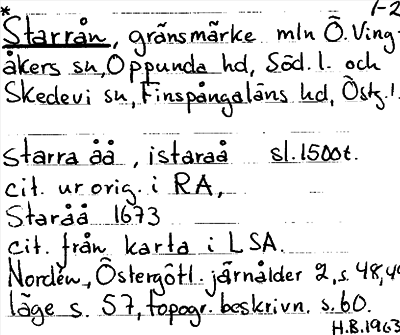 1-2
* Starrån, gränsmärke mln Ö. Ving-
åkers sn, Oppunda hd, Söd. l. och
Skedevi sn, Finspångaläns hd, Östg. l.
starra åå, istaraå sl. 1500t.
cit. ur orig. i RA,
Staråå 1673
cit. från karta i LSA.
Nordén, Östergötl. järnålder 2, s. 48,
läge s. 57, topogr. beskrivn. s. 60.
H.B. 1963